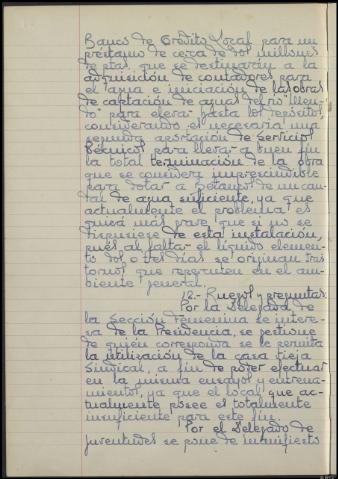 Banco de Crédito Local para un
préstamo de cerca de dos millones
de ptas. que se destinarán a la
adquisición de contadores para
el agua e iniciación de las obras
de captación de aguas del río "Men-
do" para elevar hasta los depósitos,
considerando el necesario una
segunda aportación de servicios
técnicos para llevar a buen fin
la total terminación de la obra
que se considera imprescindible
para dotar a Betanzos de un cau-
dal de agua suficiente, ya que
actualmente el problema es
quizá más grave que si no se
dispusiese de esta instalación,
pues al faltar el líquido elemen-
to dos o tres días se originan tras
tornos que repercuten en el am-
biente general.
12.- Ruegos y preguntas.
Por la Delegada de
la Sección Femenina se intere-
sa de la Presidencia, se gestione
de quien corresponda se le permita
la utilización de la casa vieja
Sindical, a fin de poder efectuar
en la misma ensayos y entrena-
mientos, ya que el local que ac-
tualmente posee es totalmente
insuficiente para este fin.
Por el Delegado de
Juventudes se pone de manifiesto